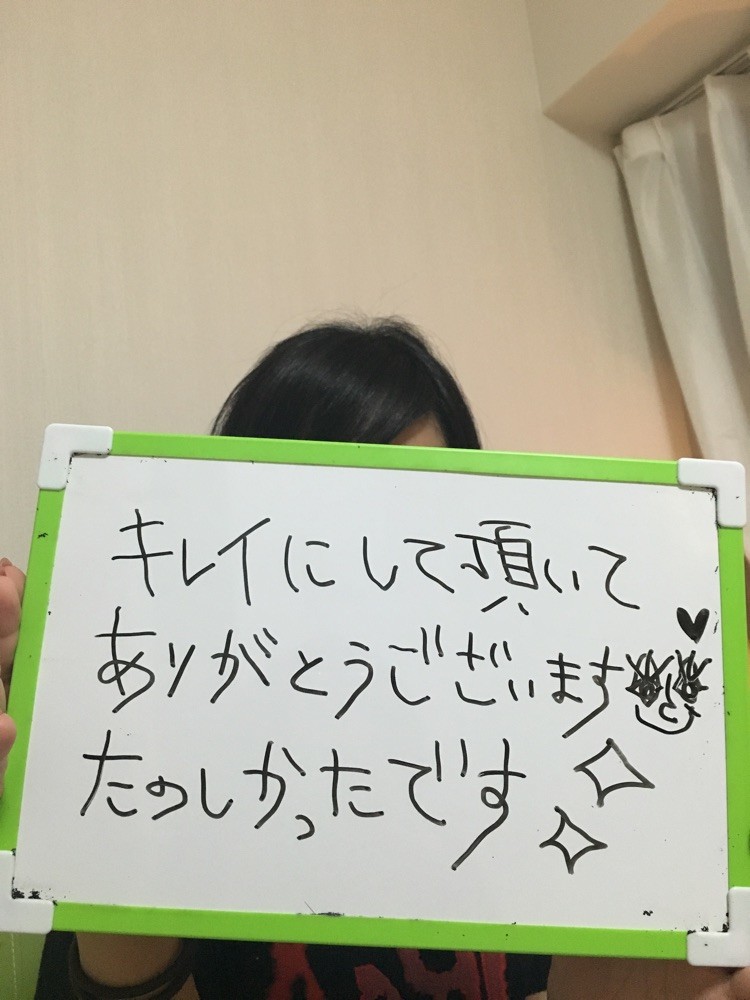 キレイにして頂いて
ありがとうございます
たのしかったです